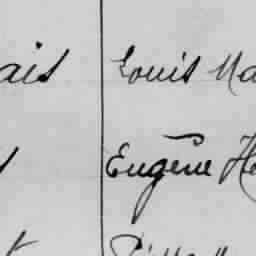 ais Louis Ma
Eugène He